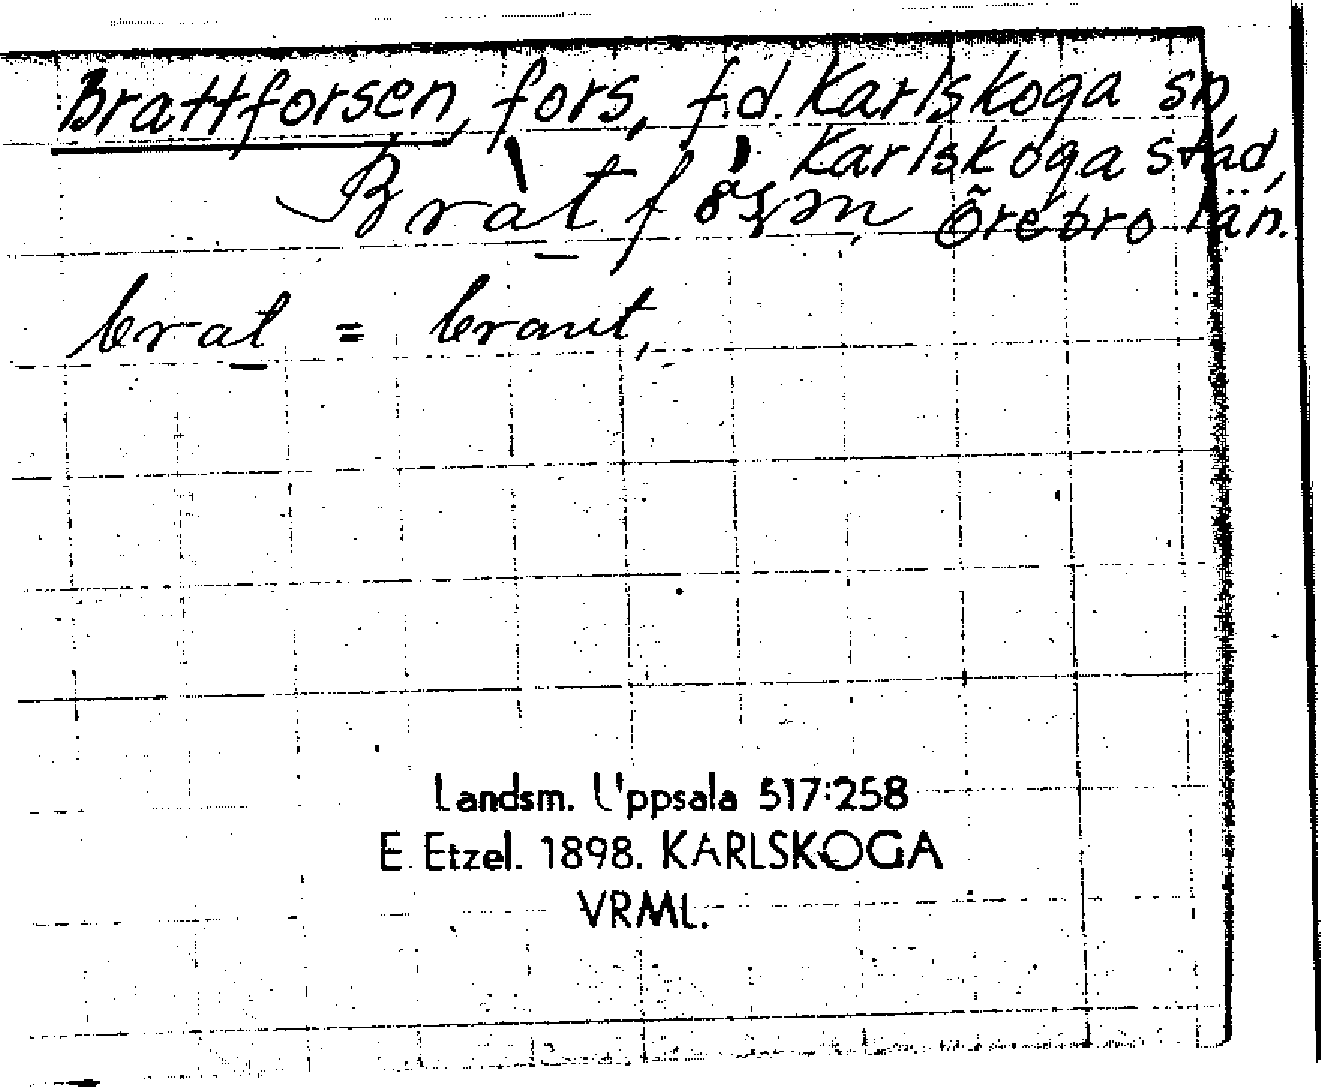 Brattforsen, fors, f.d. Karlskoga sn,
Karlskoga stad,
Örebro län.
brat = brant,
Landsm. Uppsala 517:258
E. Etzel. 1898. KARLSKOGA
VRML.